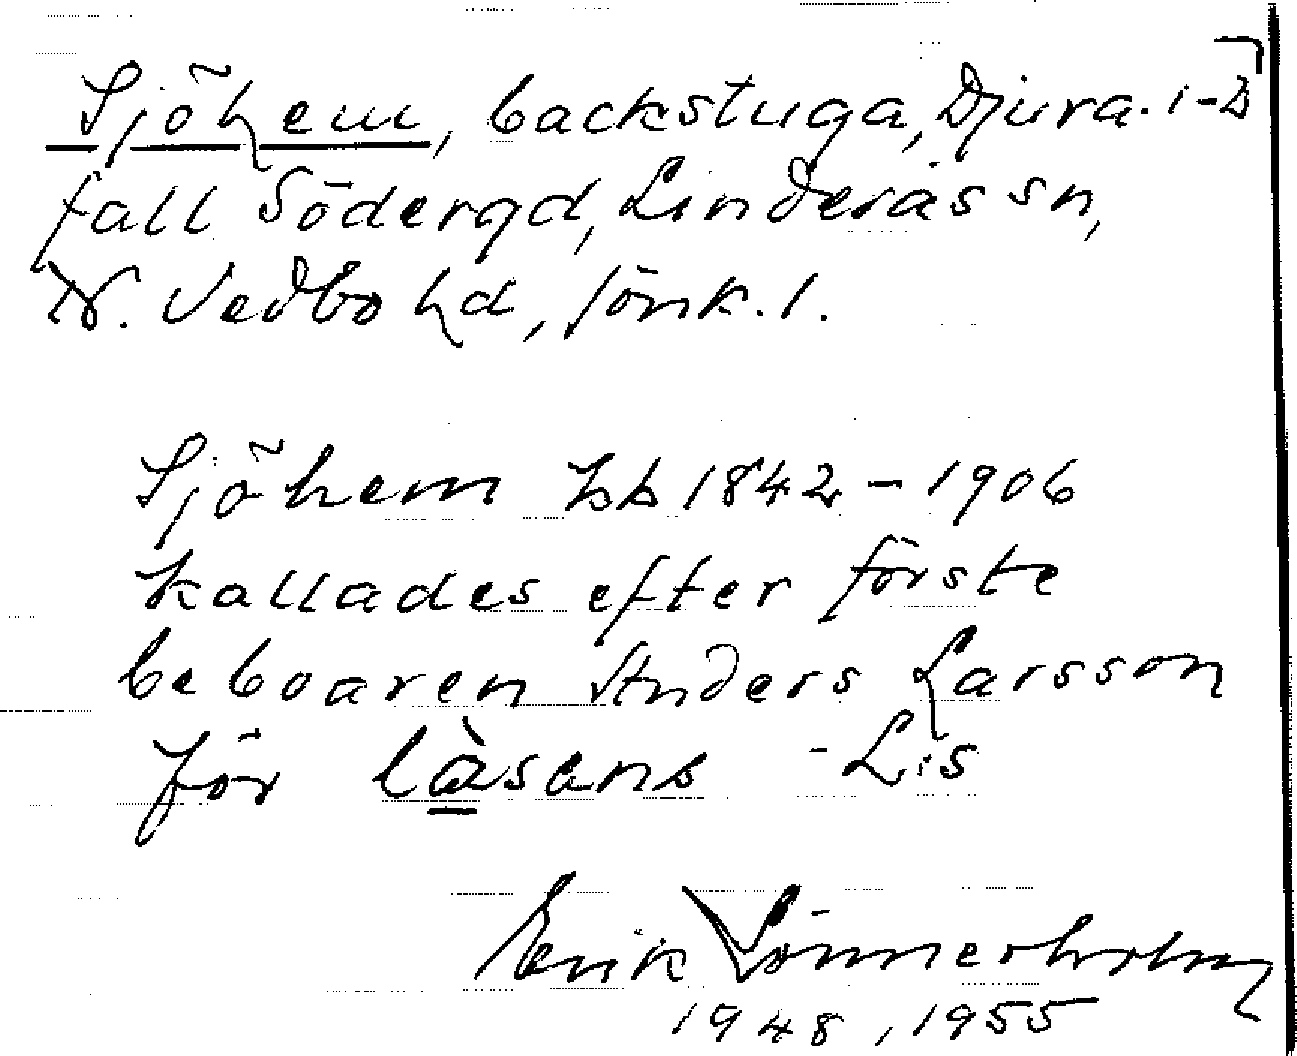 Sjöhem, backstuga, Djura. 1-2
fall Södergd, Linderås sn,
N. Vedbo hd, Jönk. l.
Sjöhem hb 1842-1906
kallades efter förste
beboaren Anders Larsson
för låsens -L:s
Erik Lönnerholm
1948, 1955